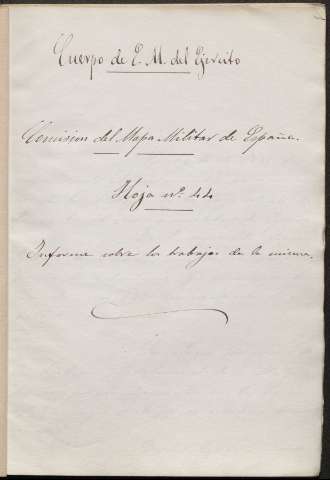 Cuerpo de E. M. del Ejército
Comision del Mapa Militar de España.
Hoja nº. 44
Informe sobre los trabajos de la misma.